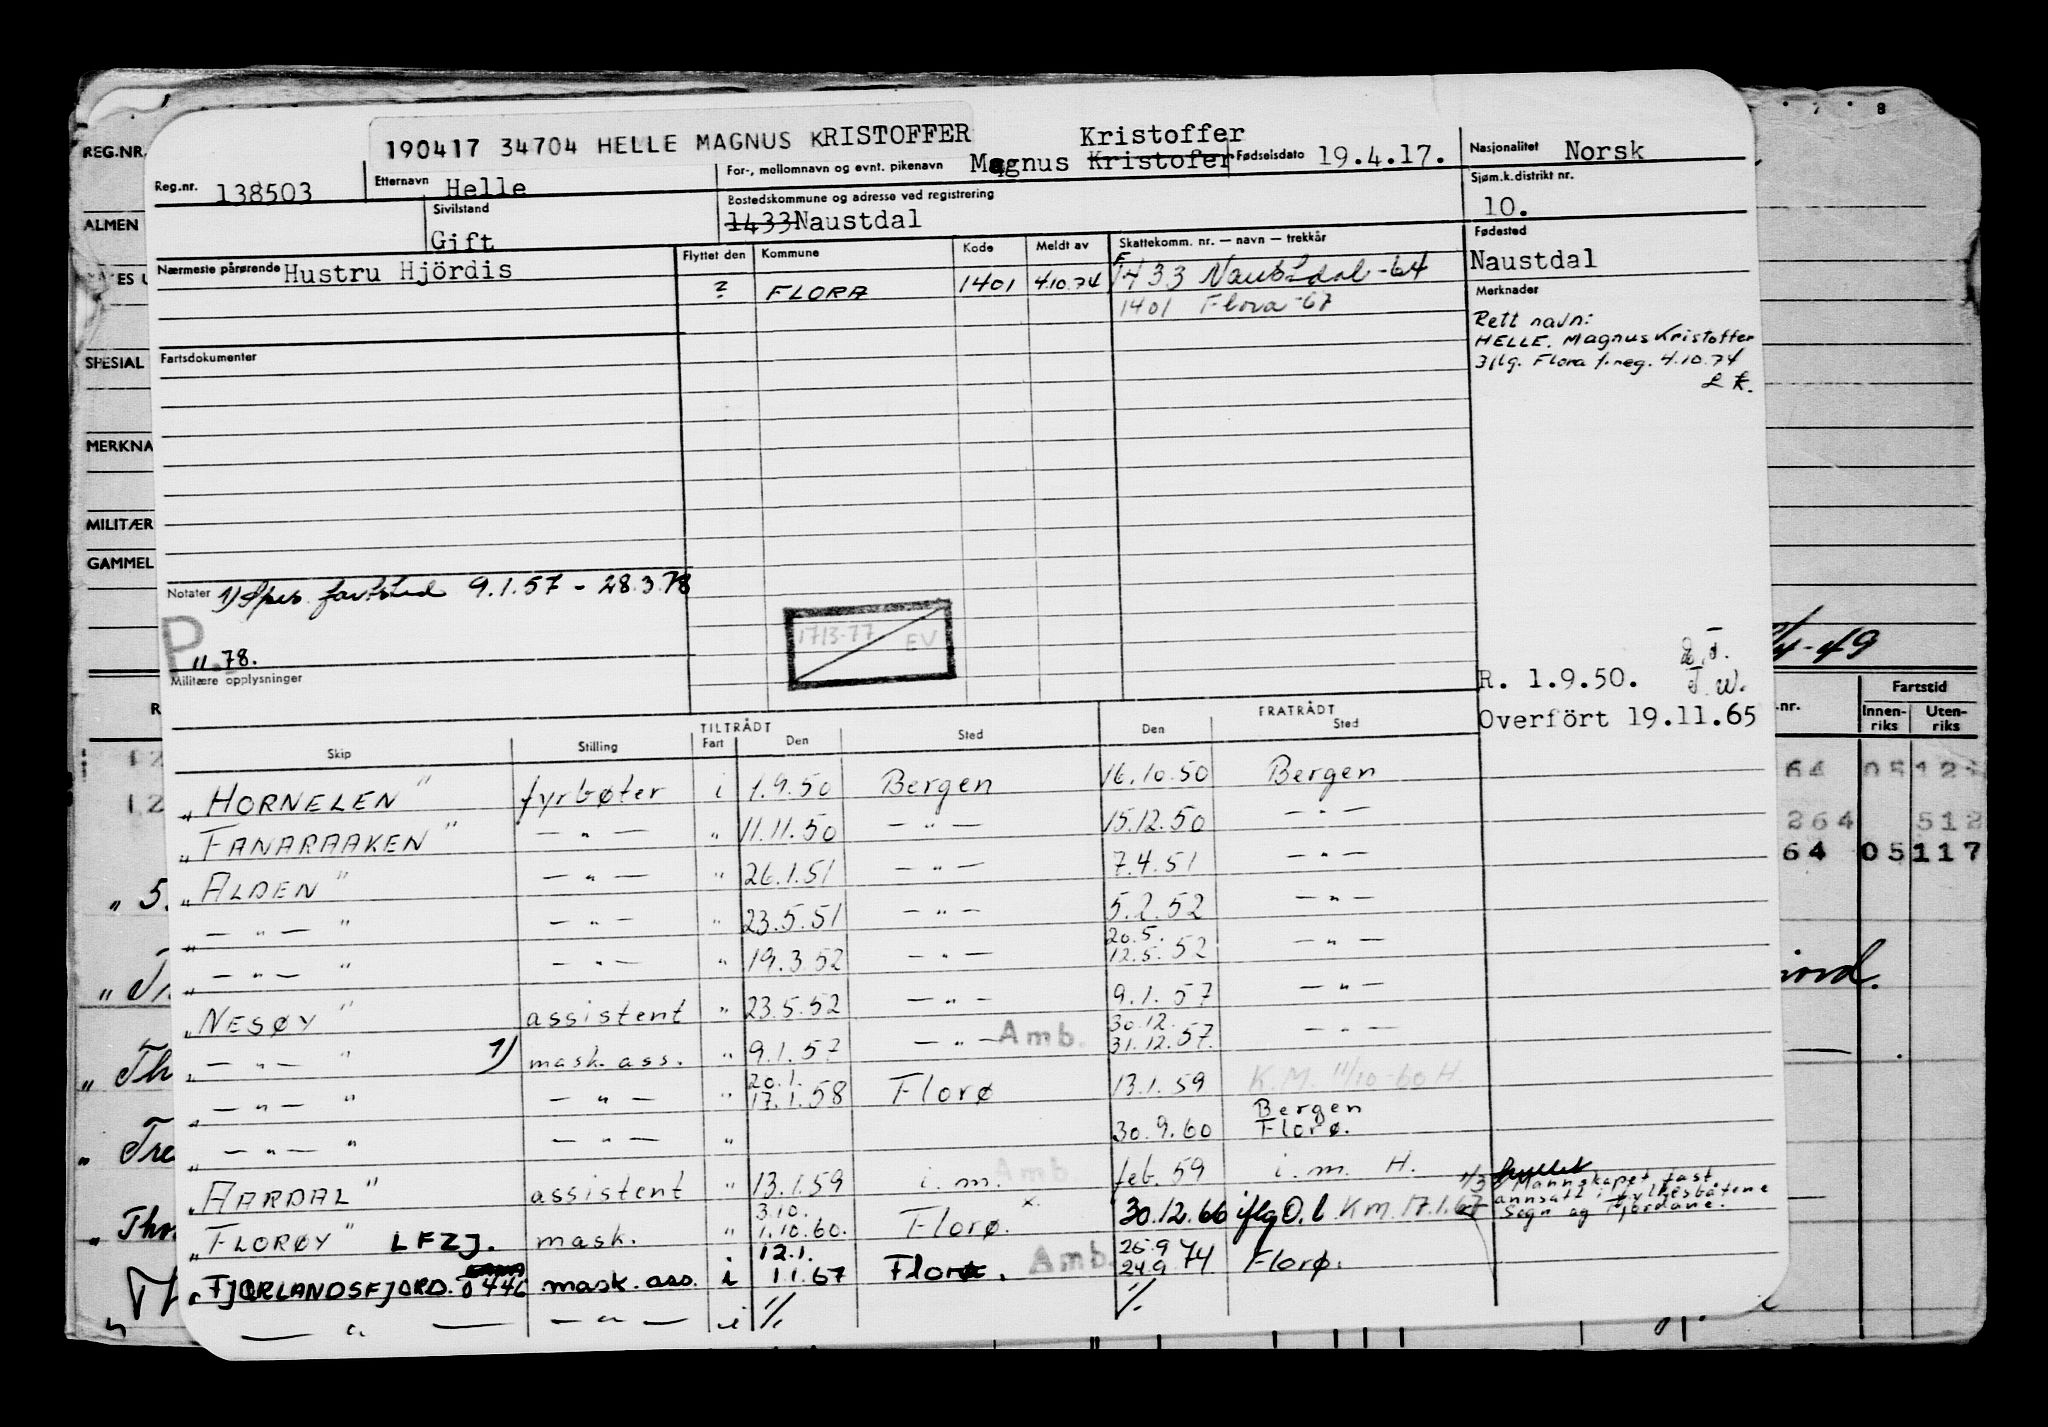 190417 34704 HELLE MAGNUS KRISTOFFER
Reg.nr. 138503
Etternavn Helle
For-, mellomnavn og evnt. pikenavn Magnus Kristofer Kristoffer
Fødselsdato 19.4.17.
Nasjonalitet Norsk
Sivilstand Gift
Bostedskommune og adresse ved registrering
1433 Naustdal
Sjøm.k.distrikt nr.
10.
Nærmeste pårørende Hustru Hjördis
Flyttet den Kommune Kode Meldt av Skattekomm. nr. — navn — trekkår
? FLORA 1401 4.10.74 1433 Naustdal -64
1401 Flora -67
Fødested
Naustdal
Merknader
Rett navn:
HELLE, Magnus Kristoffer
iflg. Flora f.reg. 4.10.74
Fartsdokumenter
Notater 1) Spes. fartstid 9.1.57 - 28.3.78
P 11.78.
1713-77 EV
Militære opplysninger
R. 1.9.50.
Overfört 19.11.65
TILTRÅDT FRATRÅDT
Skip Stilling Fart Den Sted Den Sted
"HORNELEN" fyrbøter i 1.9.50 Bergen 16.10.50 Bergen
"FANARAAKEN" — " — " 11.11.50 — " — 15.12.50 — " —
"ALDEN" — " — " 26.1.51 — " — 7.4.51 — " —
" — " — " — " — " 23.5.51 — " — 5.2.52 — " —
" — " — " — " — " 19.3.52 — " — 20.5. 12.5.52 — " —
"NESØY" assistent " 23.5.52 — " — 9.1.57 — " —
" — " — " 1) mask. ass. " 9.1.57 — " — Amb. 30.12. 31.12.57. — " —
" — " — " — " — " 20.1. 17.1.58 Florø 13.1.59 K.M. 11/10-60 H.
" — " — " — " — " 30.9.60 Bergen Florø.
"AARDAL" assistent " 13.1.59 i.m. Amb feb. 59 i.m. H.
"FLORØY" LFZJ. mask. " 3.10. 1.10.60. Florø. x. 30.12.66 iflg O.l. K.M. 17.1.67
Mannskapet fast
annsatt i fylkesbåtene
Sogn og Fjordane.
"FJÆRLANDSFJORD. 0446 mask. ass. i 12.1. 1.1.67 Florø. Amb. 25.9 24.9 74 Florø.
— " — — " — i 1/1. 1/1.
REG.NR.
ALMEN
SPESIAL
MERKNA
MILITÆR
GAMMEL
-49
Fartstid
Innen-riks Uten-riks
.nr.
64 05
264 512
64 05 117
8